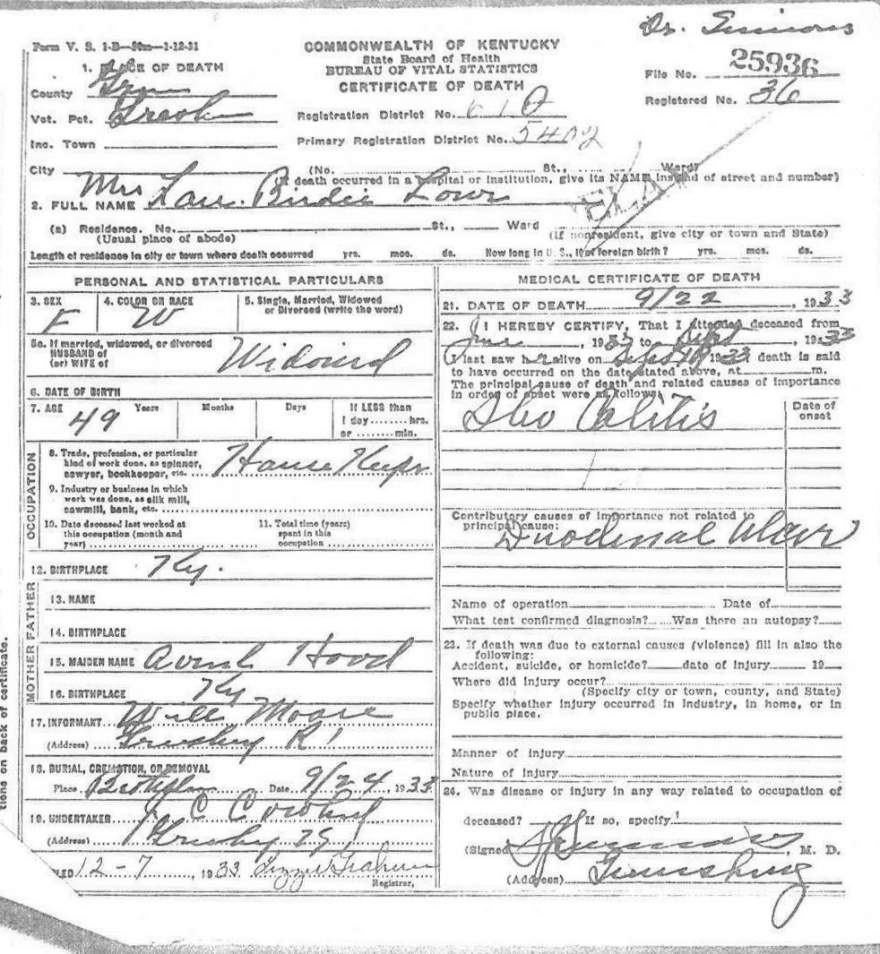 Dr. Simmons
Form V. S. 1-B—50m—1-12-31
COMMONWEALTH OF KENTUCKY
State Board of Health
BUREAU OF VITAL STATISTICS
CERTIFICATE OF DEATH
File No. 25936
Registered No. 36
1. PLACE OF DEATH
County
Vot. Pct.
Inc. Town
Registration District No. 610
Primary Registration District No. 5402
City (No. St., Ward)
(If death occurred in a hospital or institution, give its NAME instead of street and number)
2. FULL NAME Mrs Birdie
(a) Residence. No. St., Ward
(Usual place of abode) (If nonresident, give city or town and State)
Length of residence in city or town where death occurred yrs. mos. ds. How long in U. S., if of foreign birth? yrs. mos. ds.
PERSONAL AND STATISTICAL PARTICULARS
3. SEX F
4. COLOR OR RACE W
5. Single, Married, Widowed or Divorced (write the word)
5a. If married, widowed, or divorced
HUSBAND of
(or) WIFE of
Widowed
6. DATE OF BIRTH
7. AGE 49 Years Months Days If LESS than
1 day ........ hrs.
or ........ min.
OCCUPATION
8. Trade, profession, or particular
kind of work done, as spinner,
sawyer, bookkeeper, etc. House
9. Industry or business in which
work was done, as silk mill,
sawmill, bank, etc.
10. Date deceased last worked at
this occupation (month and
year)
11. Total time (years)
spent in this
occupation
12. BIRTHPLACE Ky.
FATHER
13. NAME
14. BIRTHPLACE
MOTHER
15. MAIDEN NAME Hood
16. BIRTHPLACE Ky
17. INFORMANT Will Moore
(Address) R 1
18. BURIAL, CREMATION, OR REMOVAL
Place Date 9/24, 1933
19. UNDERTAKER
(Address)
FILED 12-7, 1933 Lizzie Graham
Registrar.
tions on back of certificate.
MEDICAL CERTIFICATE OF DEATH
21. DATE OF DEATH 9/22, 1933
22. I HEREBY CERTIFY, That I attended deceased from
June, 1933 to Sept, 1933
I last saw her alive on Sept 1933 death is said
to have occurred on the date stated above, at m.
The principal cause of death and related causes of importance
in order of onset were as follows:
Date of
onset
Ileo Colitis
Contributory causes of importance not related to
principal cause:
Duodenal Ulcer
Name of operation Date of
What test confirmed diagnosis? Was there an autopsy?
23. If death was due to external causes (violence) fill in also the
following:
Accident, suicide, or homicide? date of injury 19
Where did injury occur?
(Specify city or town, county, and State)
Specify whether injury occurred in industry, in home, or in
public place.
Manner of injury
Nature of injury
24. Was disease or injury in any way related to occupation of
deceased? If so, specify
(Signed) Simmons, M. D.
(Address) Greensburg